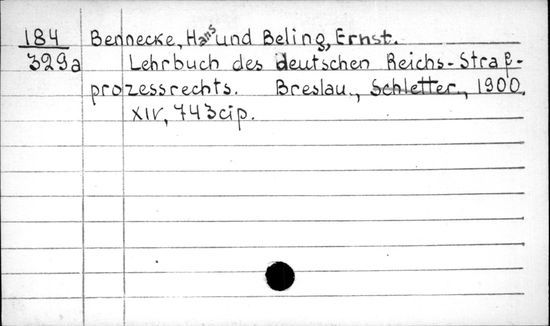 184 Bennecke, Hans und Beling, Ernst.
329a Lehrbuch des deutschen Reichs-Straß-
prozessrechts. Breslau., Schletter, 1900.
XIV, 743 cip.